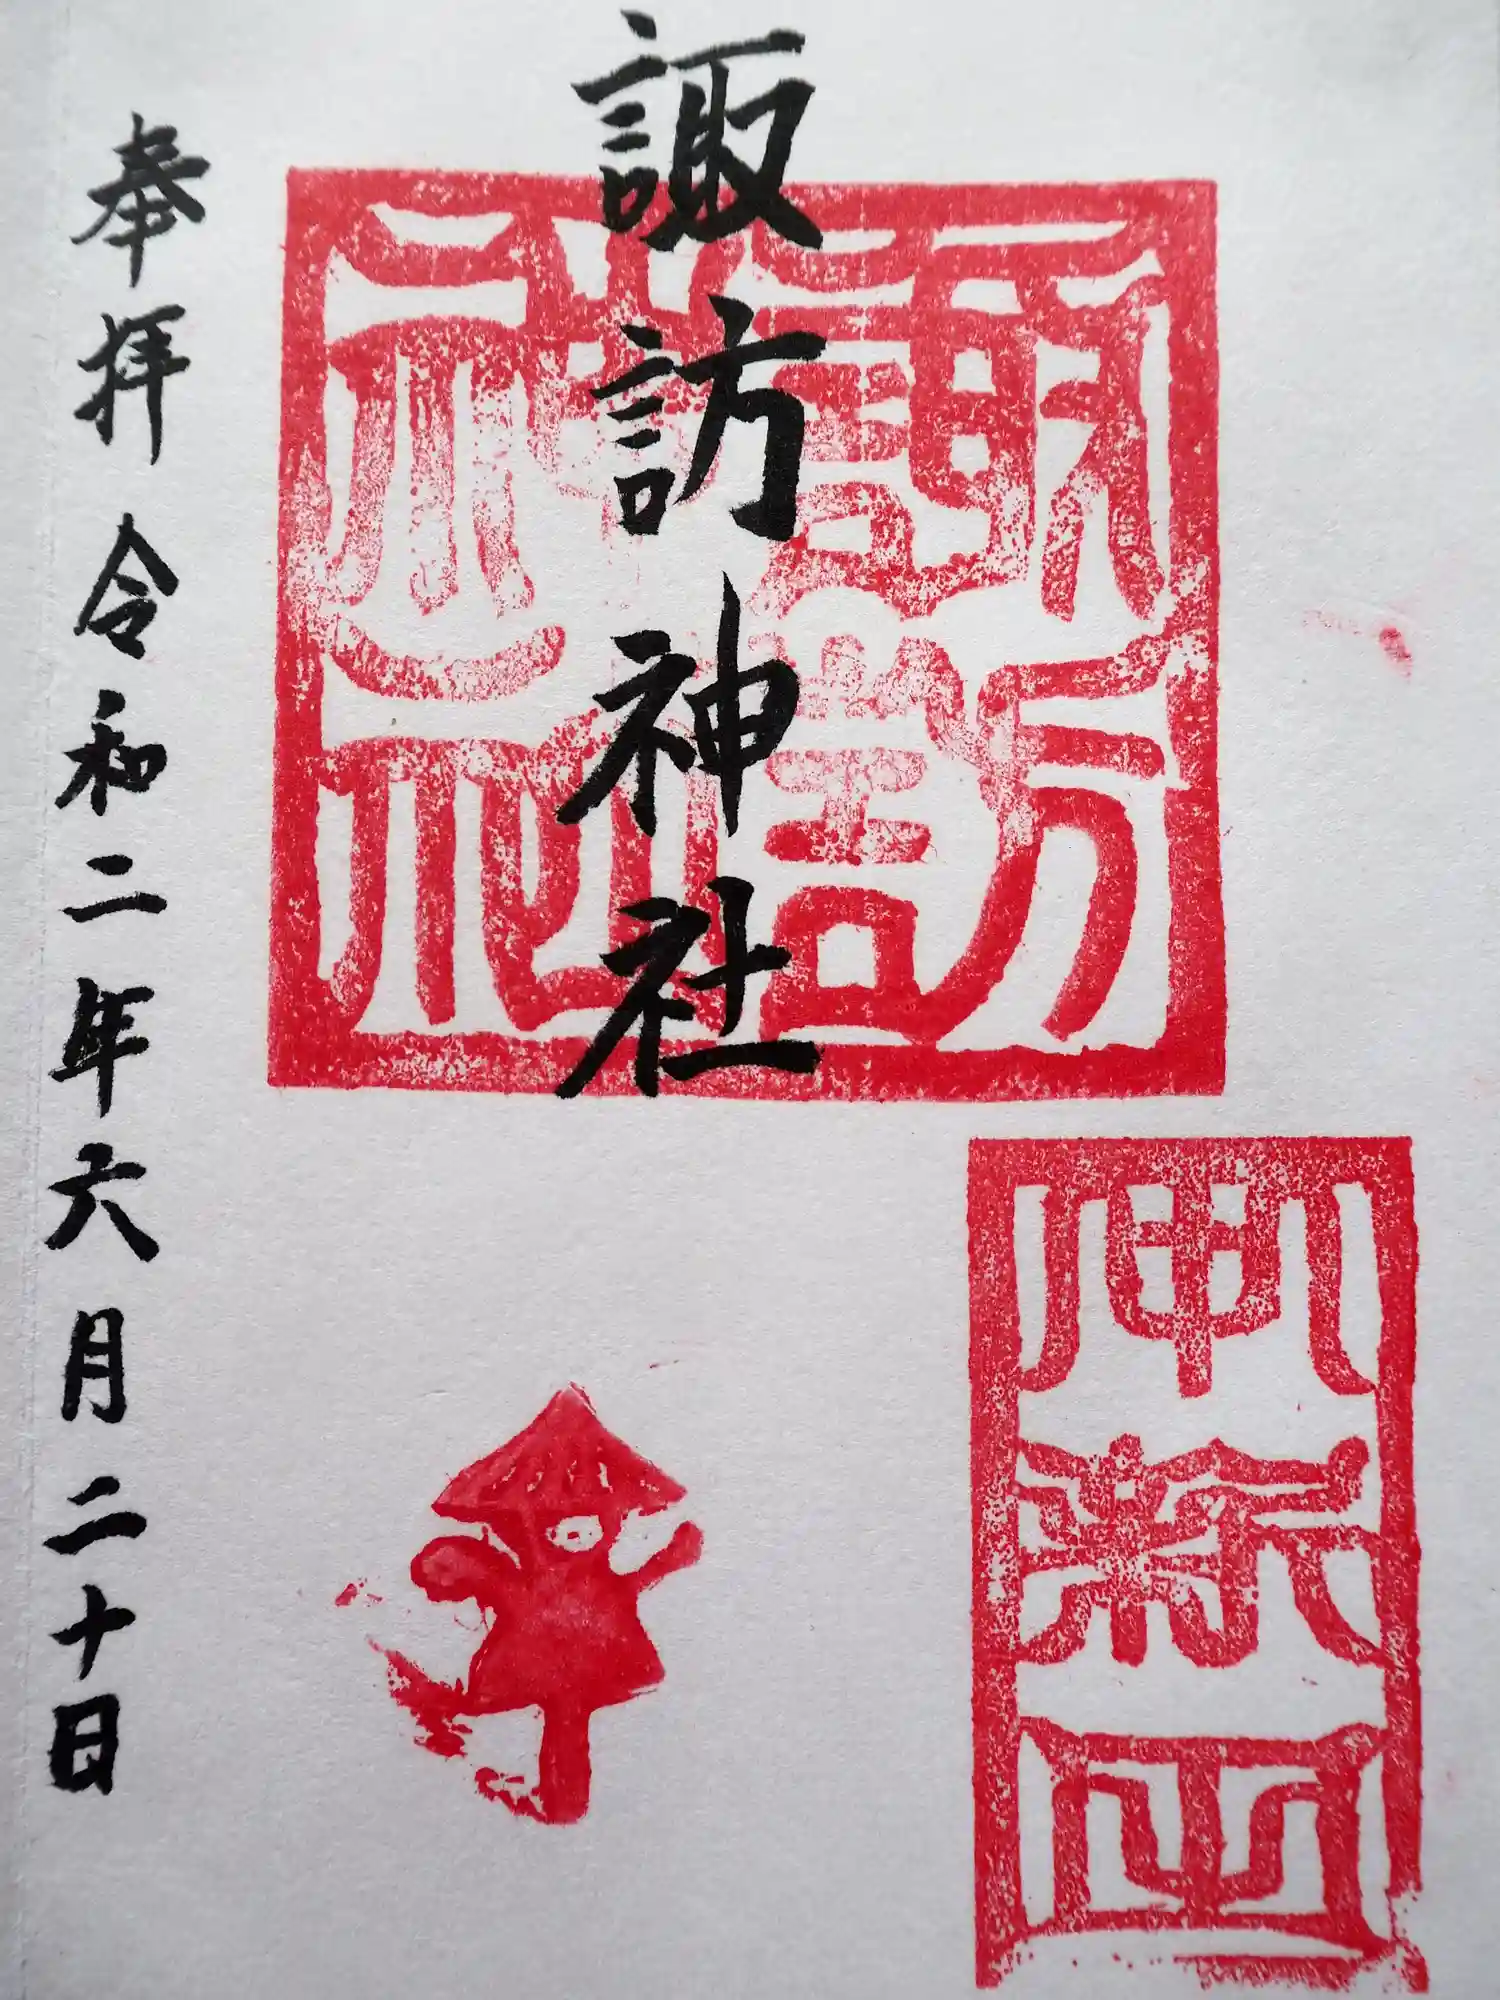 諏訪神社
奉拝 令和二年六月二十日
諏訪
神社